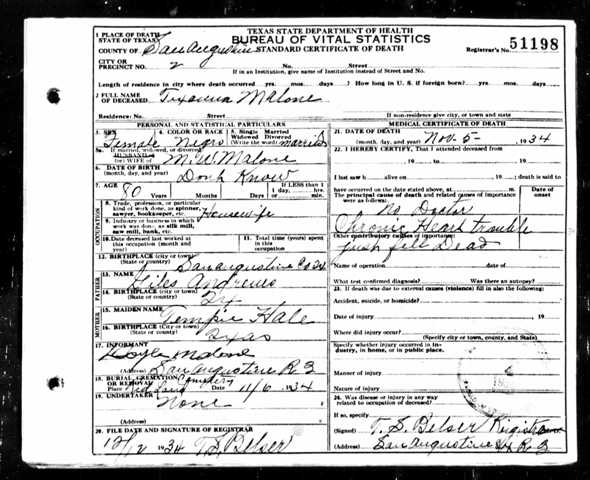 TEXAS STATE DEPARTMENT OF HEALTH
BUREAU OF VITAL STATISTICS
STANDARD CERTIFICATE OF DEATH
Registrar's No. 51198
1 PLACE OF DEATH
STATE OF TEXAS
COUNTY OF San Augustine
CITY OR
PRECINCT NO. 2 No. Street
If in an Institution, give name of Institution instead of Street and No.
Length of residence in city where death occurred yrs. mos. days ? How long in U. S. if foreign born? yrs. mos. days
2 FULL NAME
OF DECEASED Texanna Malone
Residence: No. Street
If non-residence give city, or town and state
PERSONAL AND STATISTICAL PARTICULARS
3. SEX Female
4. COLOR OR RACE Negro
5. Single Married
Widowed Divorced
(Write the word) married
5a. If married, widowed, or divorced
HUSBAND of
(or) WIFE of M. W. Malone
6. DATE OF BIRTH
(month, day, and year) Dont Know
7. AGE 80 Years Months Days
If LESS than
1 day, hrs.
or min.
8. Trade, profession, or particular
kind of work done, as spinner,
sawyer, bookkeeper, etc. Housewife
9. Industry or business in which
work was done, as silk mill,
saw mill, bank, etc.
10. Date deceased last worked at
this occupation (month and
year)
11. Total time (years) spent
in this occupation
12. BIRTHPLACE (city or town)
(State or country) San Augustine Co Tx
FATHER
13. NAME Giles Andrews
14. BIRTHPLACE (city or town)
(State or country) Tx
MOTHER
15. MAIDEN NAME Tempie Hale
16. BIRTHPLACE (city or town)
(State or country) Texas
17 INFORMANT
Doyle Malone
(Address) San Augustine R 3
18. BURIAL, CREMATION,
OR REMOVAL Cemetery
Place Red Land Date 11/6 1934
19. UNDERTAKER
(Address) None
20. FILE DATE AND SIGNATURE OF REGISTRAR
12/12 1934 T. S. Belser
MEDICAL CERTIFICATE OF DEATH
21. DATE OF DEATH
(month, day, and year) Nov. 5- 1934
22. I HEREBY CERTIFY, That I attended deceased from
, 19 to , 19
I last saw h alive on , 19 , death is said to
have occurred on the date stated above, at m.
The principal cause of death and related causes of importance
were as follows:
Date of
onset
No Doctor
Chronic Heart trouble
Other contributory causes of importance:
just fell Dead
Name of operation Date of
What test confirmed diagnosis? Was there an autopsy?
23. If death was due to external causes (violence) fill in also the following:
Accident, suicide, or homicide?
Date of injury , 19
Where did injury occur?
(Specify city or town, county, and State)
Specify whether injury occurred in industry, in home, or in public place.
Manner of injury
Nature of injury
24. Was disease or injury in any way
related to occupation of deceased?
If so, specify
(Signed) T. S. Belser Registrar
(Address) San Augustine Tx R 3